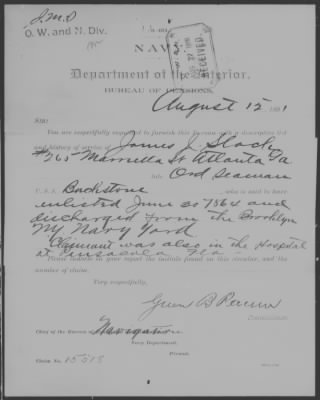 J.M.D
O. W. and N. Div.
NAVY
RECEIVED
Department of the Interior,
BUREAU OF PENSIONS,
August 12 1891
SIR:
You are respectfully requested to furnish this Bureau with a descriptive list
and history of service of James J
#265 Marrietta St Atlanta Ga
late Ord Seaman
U. S. S. , who is said to have
enlisted June 20 1864 and
discharged from the Brooklyn
Ny Navy Yard
Claimant was also in the Hospital
at Pensacola
Please indorse in your report the initials found on this circular, and the
number of claim.
Very respectfully,
Green B Raum
Commissioner.
Chief of the Bureau of Navigation
Navy Department,
Present.
Claim No. 15513